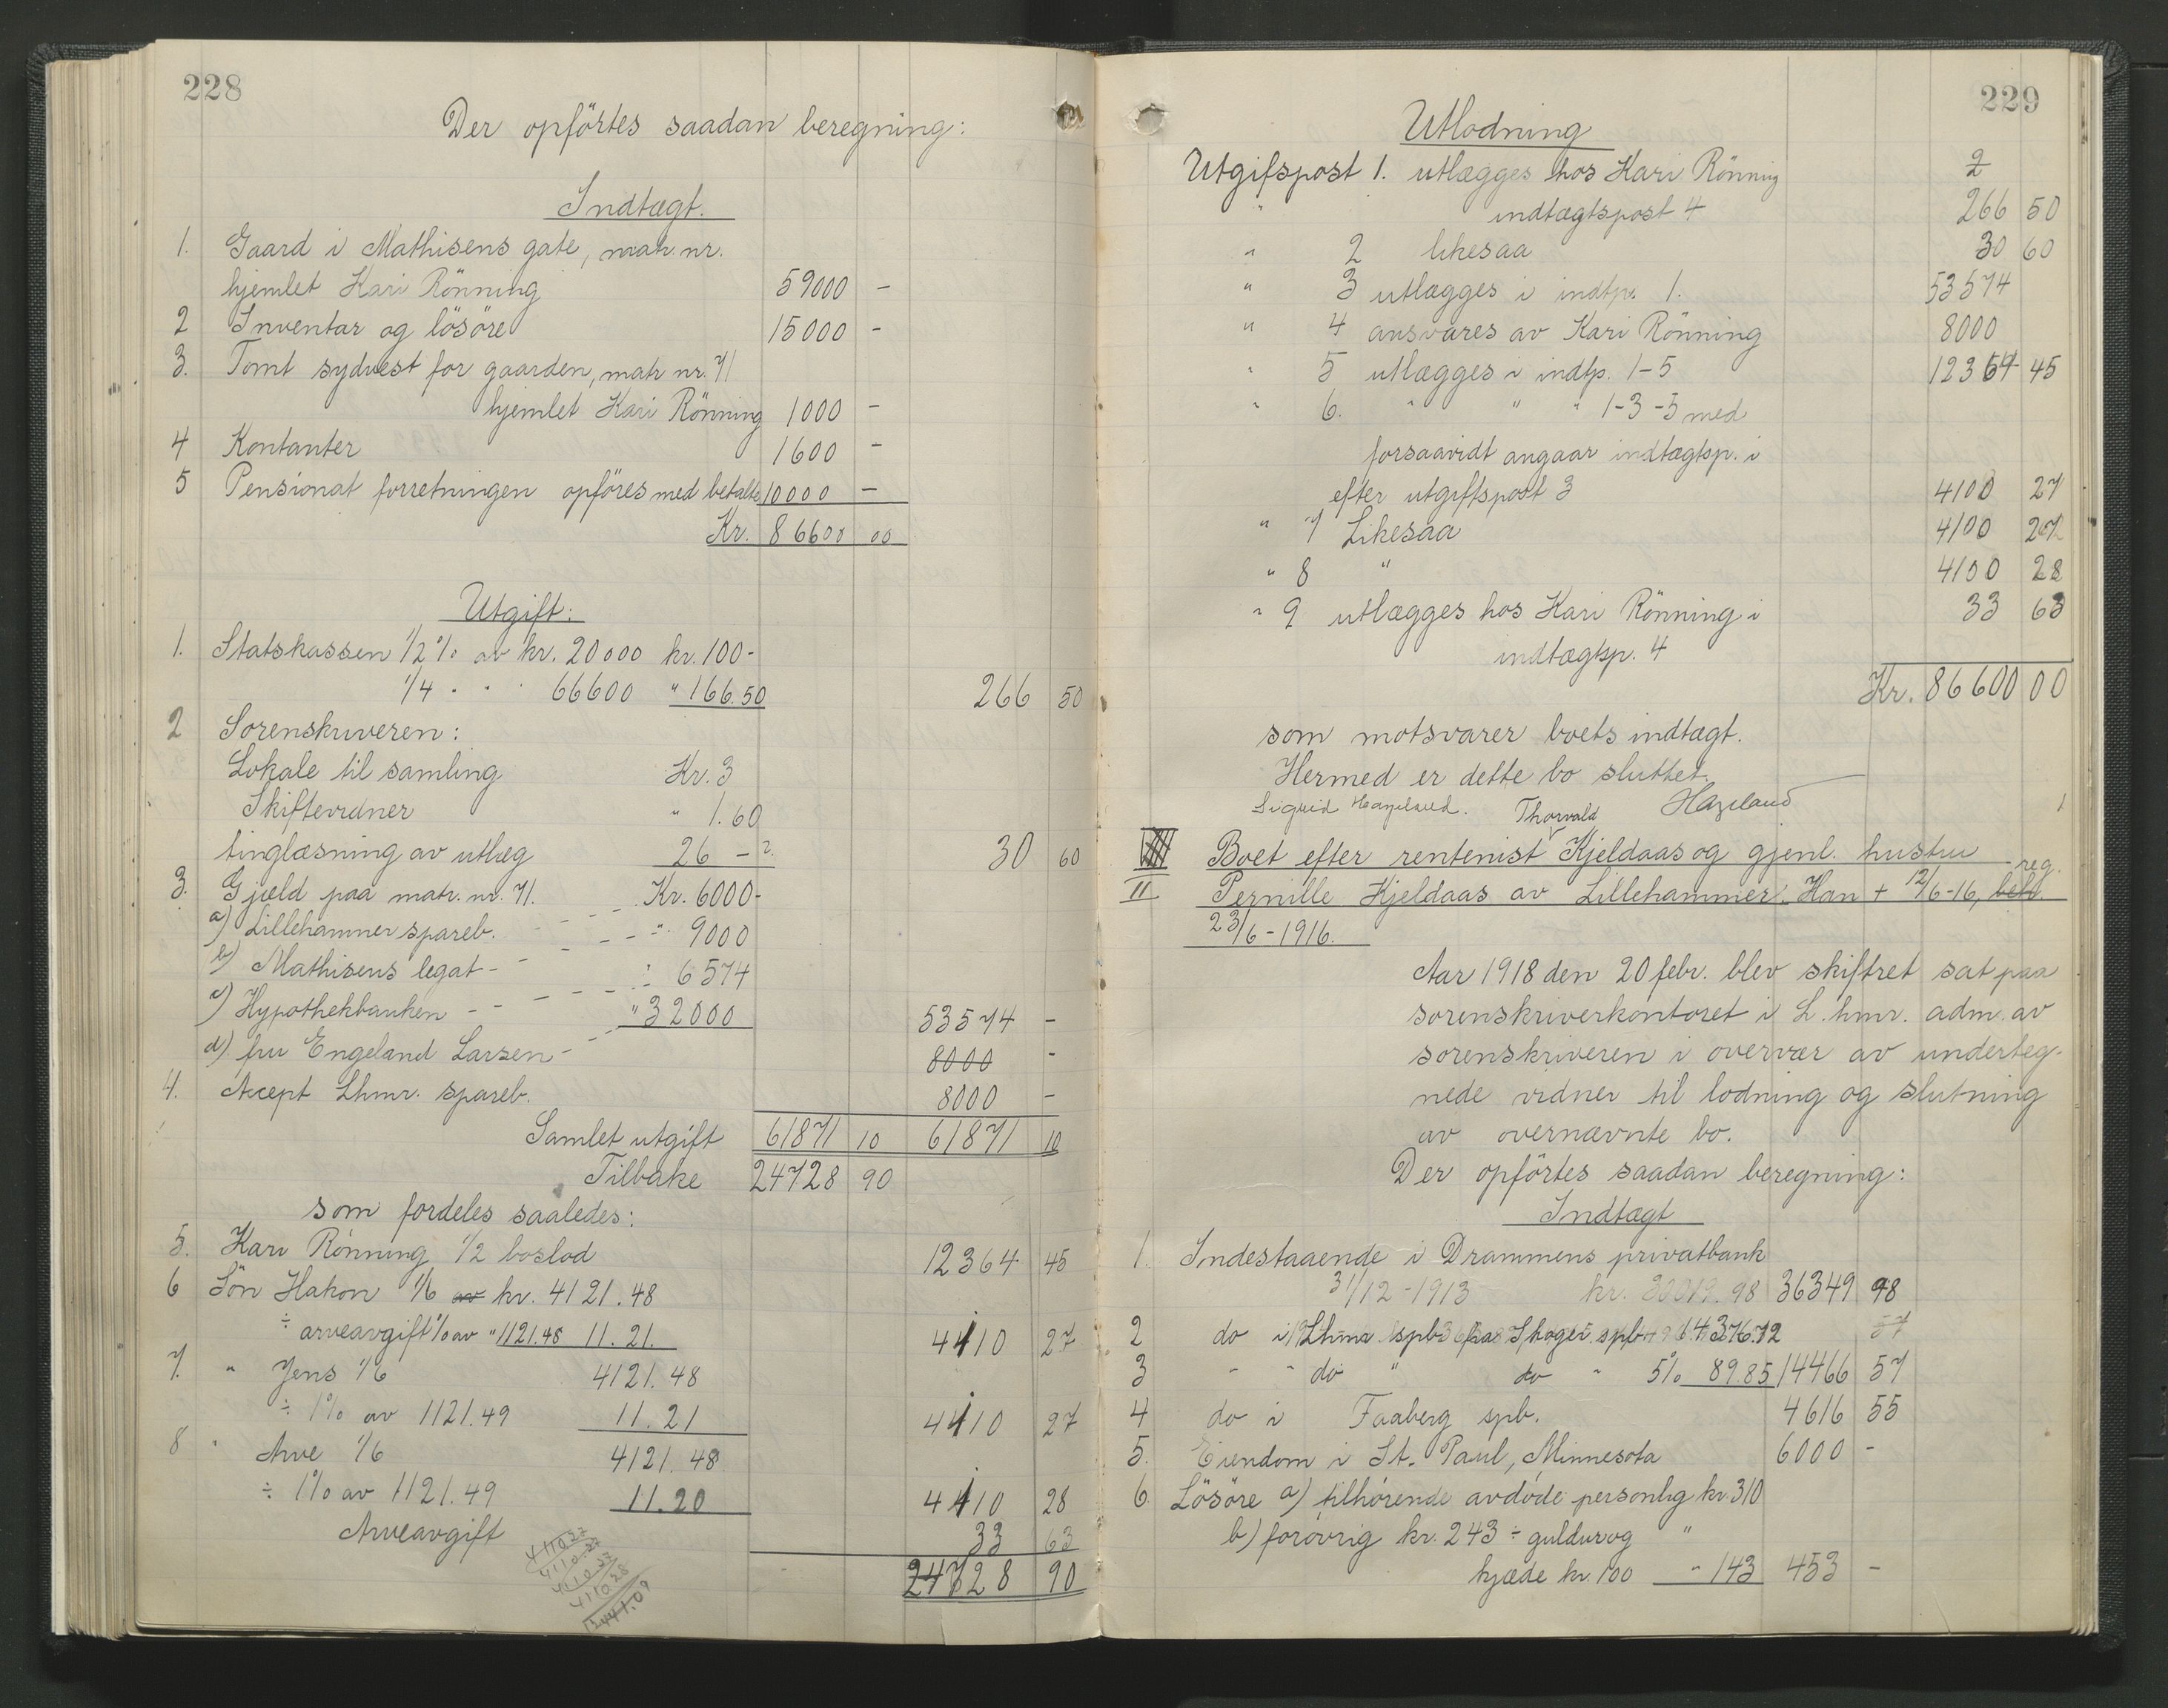 228
Der opförtes saadan beregning:
Indtægt.
1. Gaard i Mathisens gate, matr. nr.
hjemlet Kari Rönning 59000 -
2 Inventar og lösöre 15000 -
3. Tomt sydvest for gaarden, matr nr. 71
hjemlet Kari Rönning 1000 -
4 Kontanter 1600 -
5 Pensionat forretningen opföres med betalte 10000 -
Kr. 86600 00
Utgift:
1. Statskassen 1/2 % av kr. 20000 kr. 100-
1/4 " " 66600 " 166.50 266 50
2 Sorenskriveren:
Lokale til samling Kr. 3
Skiftevidner " 1.60
tinglæsning av utlæg 26 - 30 60
3. Gjæld paa matr. nr. 71. Kr. 6000-
a) Lillehammer spareb. - - - " 9000
b) Mathisens legat - - - - " 6574
c) Hypothekbanken - - - - - " 32000 53574 -
d) fru Engeland Larsen - - 8000 -
4. Accept Lhmr. spareb. 8000 -
Samlet utgift 61871 10 61871 10
Tilbake 24728 90
som fordeles saaledes:
5. Kari Rönning 1/2 boslod 12364 45
6 Sön Hakon 1/6 av kr. 4121.48
÷ arveavgift % av " 1121.48 11.21. 4110 27
7. " Jens 1/6 4121.48
÷ 1% av 1121.49 11.21 4110 27
8 " Arve 1/6 4121.48
÷ 1% av 1121.49 11.20 4110 28
Arveavgift 33 63
24728 90
4110.27
4110.27
4110.28
229
Utlodning
Utgifspost 1. utlægges hos Kari Rönning 2
" indtægtspost 4 266 50
" 2 likesaa 30 60
" 3 utlægges i indtp. 1. 53574
" 4 ansvares av Kari Rönning 8000
" 5 utlægges i indtp. 1-5 12364 45
" 6. " " " 1-3-5 med
forsaavidt angaar indtægtsp. i
efter utgiftspost 3 4100 27
" 7 Likesaa 4100 27
" 8 " 4100 28
" 9 utlægges hos Kari Rönning i 33 63
indtægtsp. 4
Kr. 86600 00
som motsvarer boets indtægt.
Hermed er dette bo sluttet.
Sigrid Hageland. Thorvald Hageland
II Boet efter rentenist Kjeldaas og gjenl. hustru
Pernille Kjeldaas av Lillehammer. Han + 12/6-16, beh. reg.
23/6-1916.
Aar 1918 den 20 febr. blev skiftret sat paa
sorenskriverkontoret i L.hmr. adm. av
sorenskriveren i overvær av underteg-
nede vidner til lodning og slutning
av overnævnte bo.
Der opförtes saadan beregning:
Indtægt
1. Indestaaende i Drammens privatbank
31/12-1913 kr. 36349 98
2 do i Lhmr spb fra Skoger spb. 14376.72
3 " " do " do " 5% 89.85 14466 57
4 do i Faaberg spb. 4616 55
5. Eiendom i St. Paul, Minnesota 6000 -
6. Lösöre a) tilhörende avdöde personlig kr. 310
b) forövrig kr. 243 ÷ guldur og "
kjæde kr. 100 " 143 453 -